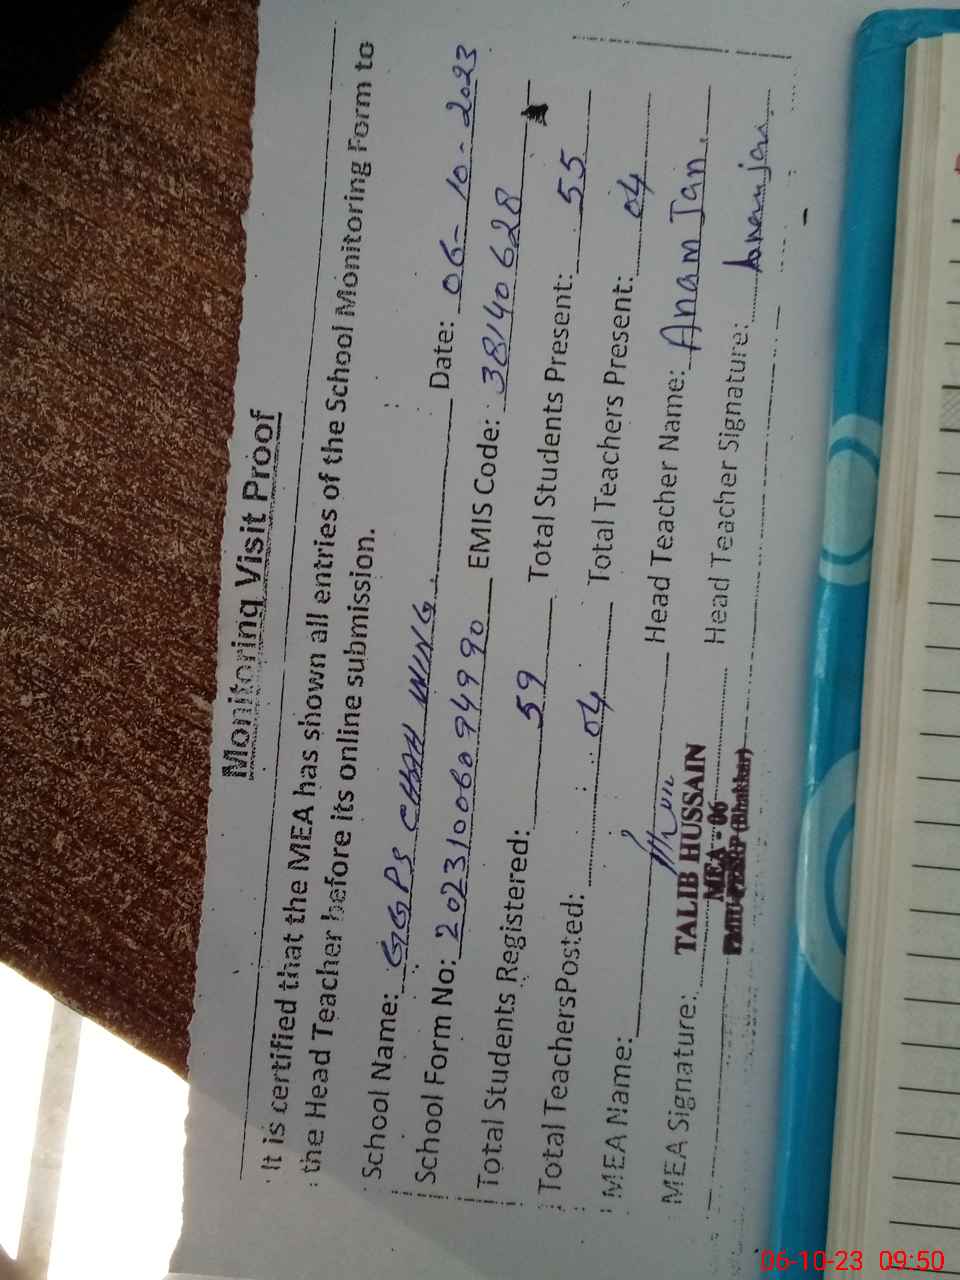 Monitoring Visit Proof
It is certified that the MEA has shown all entries of the School Monitoring Form to
the Head Teacher before its online submission.
School Name: GGPS CHAH WING Date: 06-10-2023
School Form No: 20231006094990 EMIS Code: 38140628
Total Students Registered: 59 Total Students Present: 55
Total TeachersPosted: 04 Total Teachers Present: 04
MEA Name: Head Teacher Name: Anam Jan.
MEA Signature: TALIB HUSSAIN Head Teacher Signature: Anam jan
MEA - 06
(Bhakkar)
06-10-23 09:50